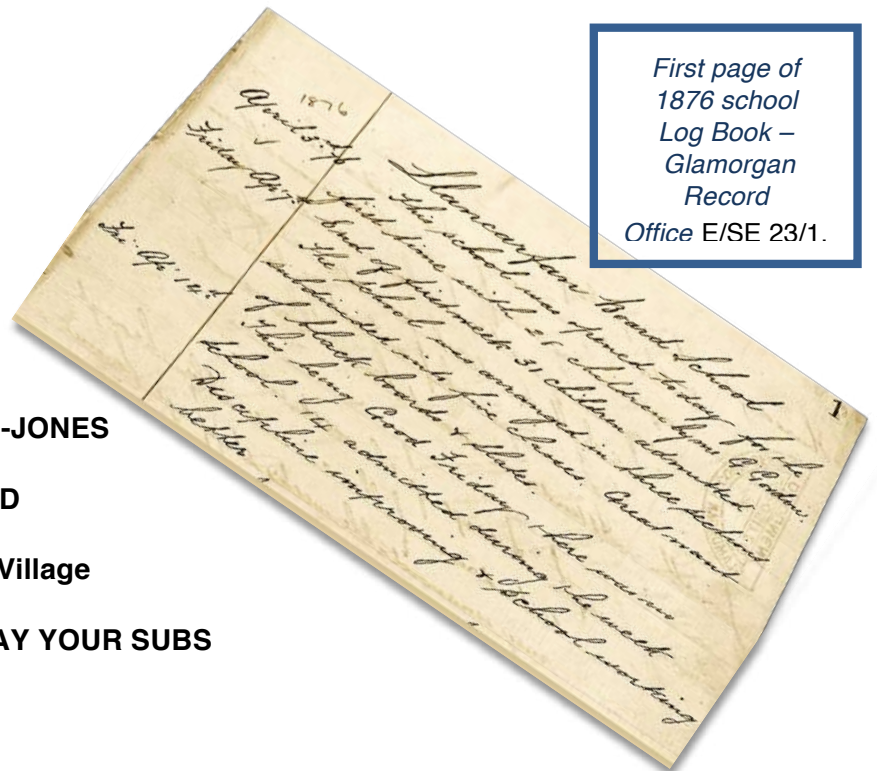 First page of
1876 school
Log Book –
Glamorgan
Record
Office E/SE 23/1.
1876
April 3rd
Friday Ap. 7th
Fri. Ap. 14th
1
Llancarfan Board School
This school was opened to-day for the
first time with 26 children by
End of first week 31 children admitted
The School was arranged in three sections
subdivided into five classes. Great want
of black boards & slates.
This being Good Friday there was no
school. 14 admitted during the week
Discipline improving & School working
better
-JONES
D
Village
AY YOUR SUBS